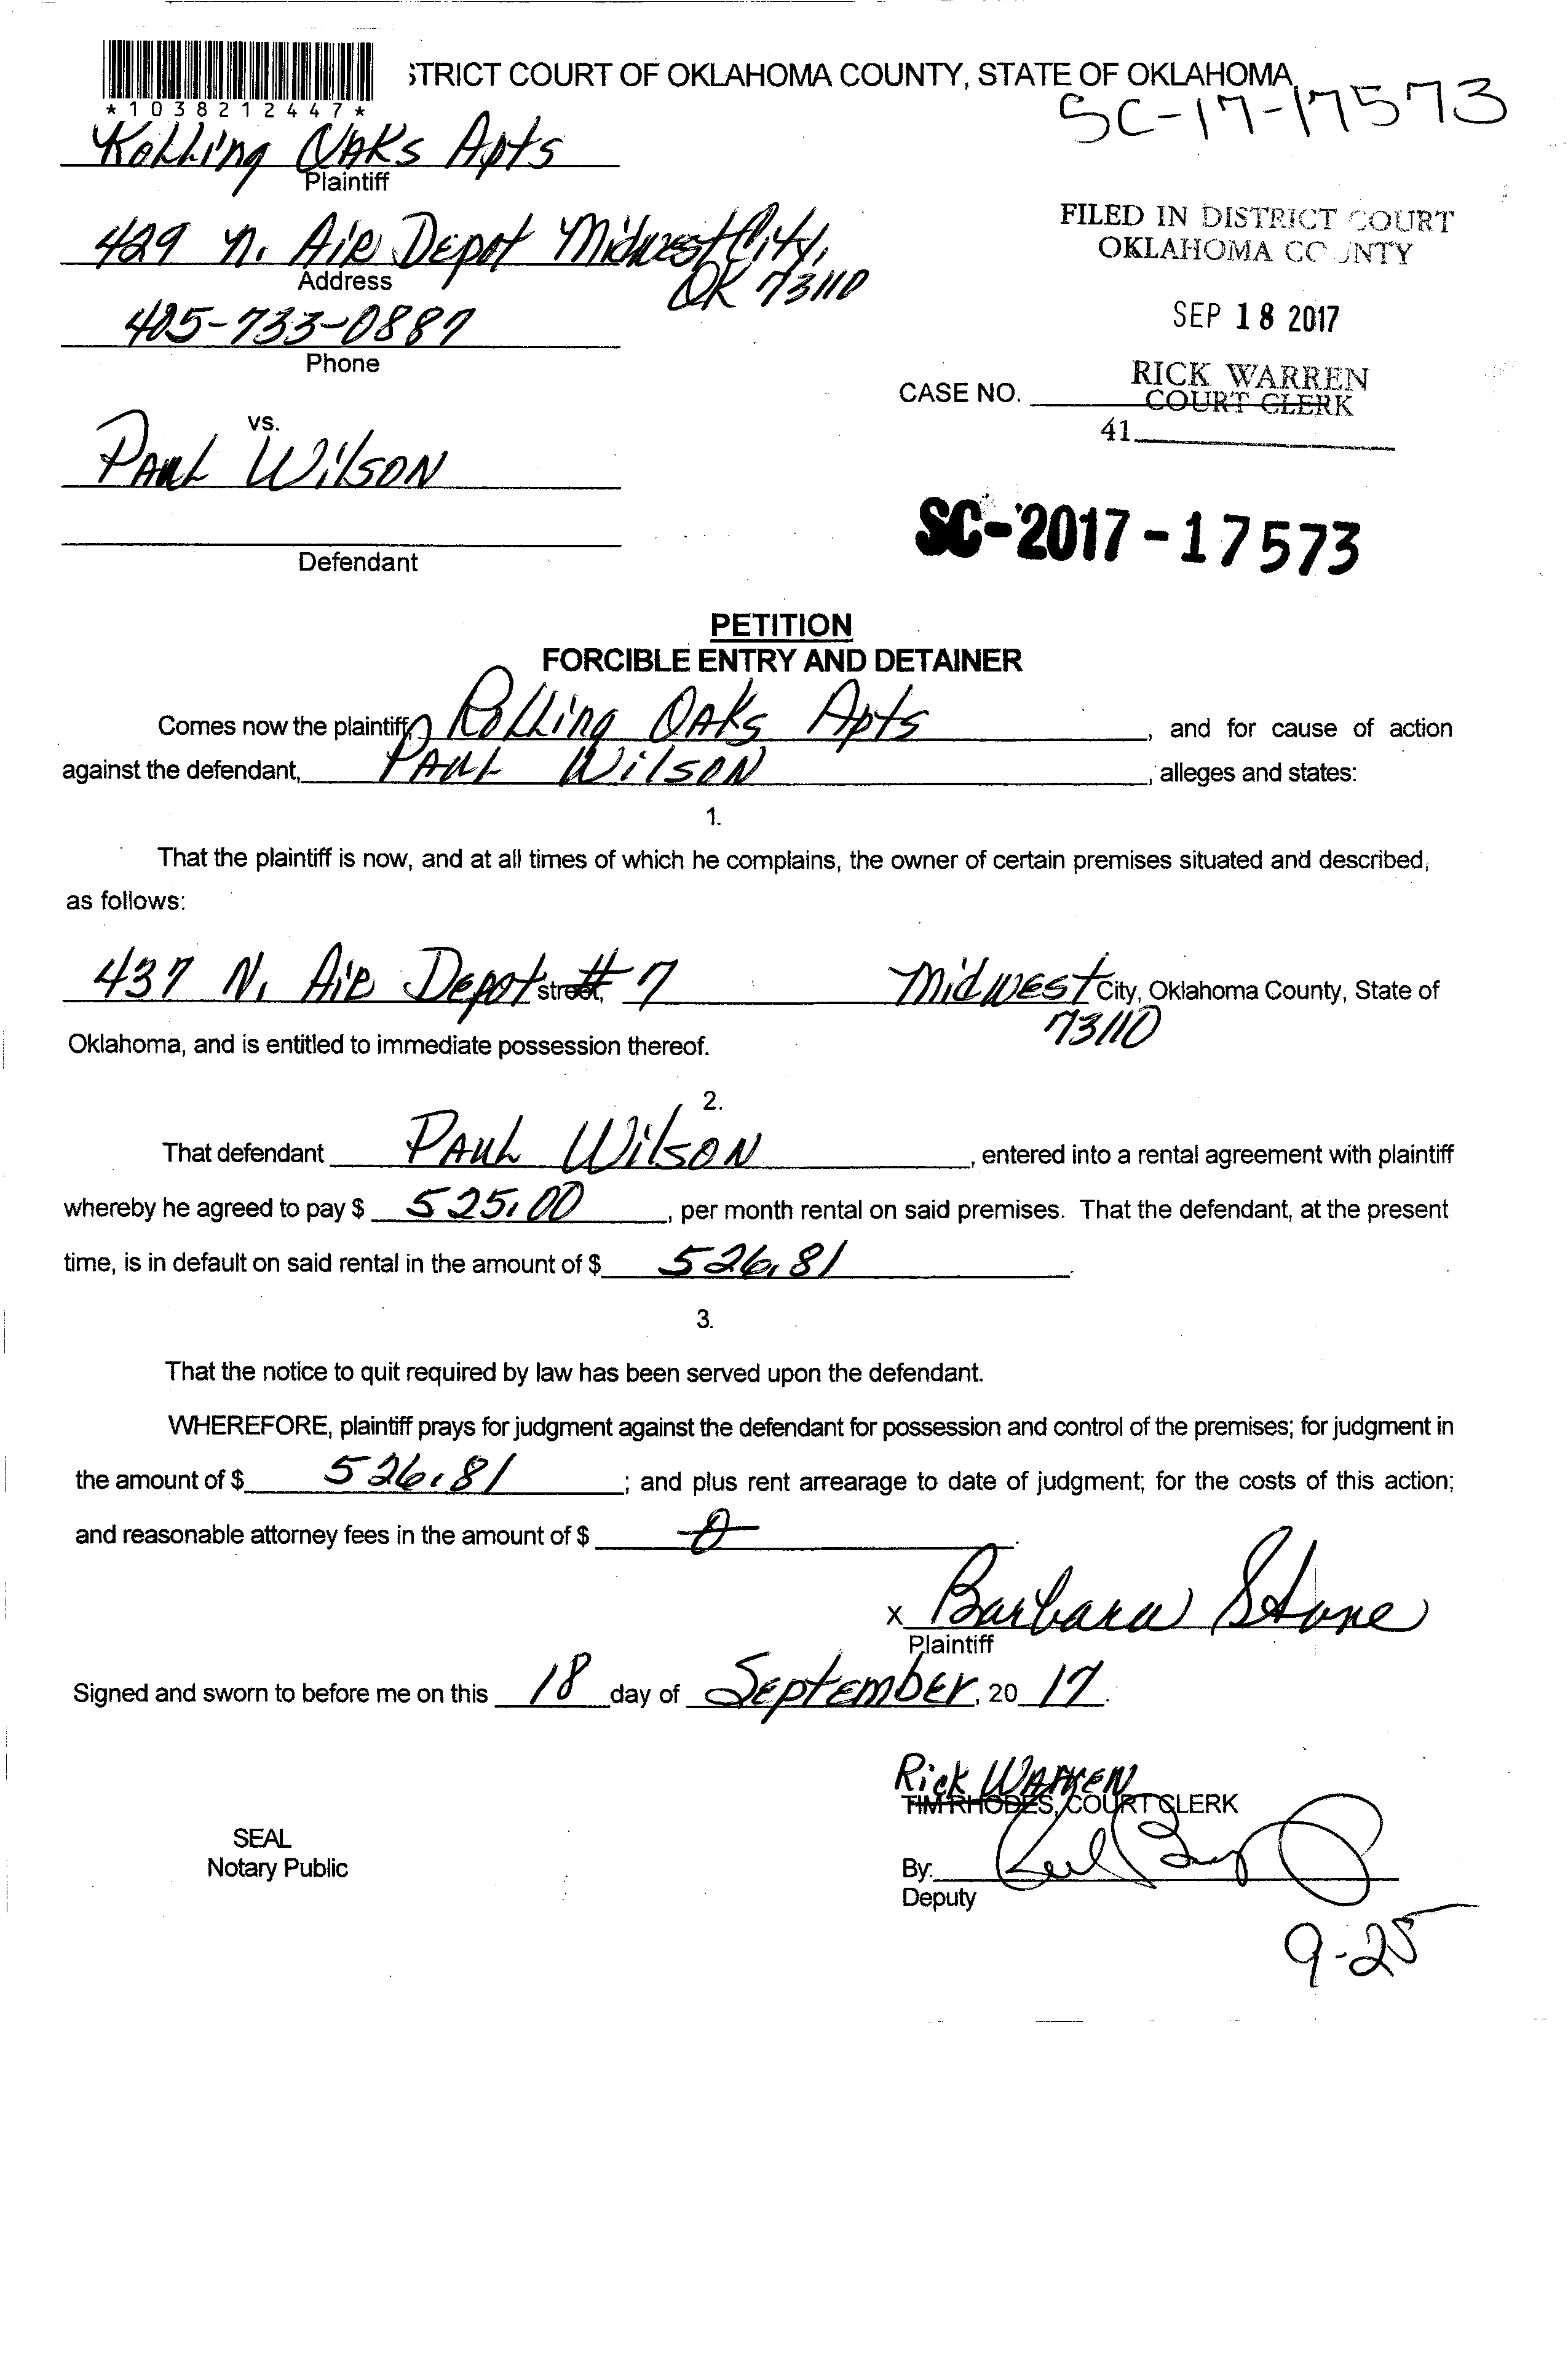 STRICT COURT OF OKLAHOMA COUNTY, STATE OF OKLAHOMA
*1038212447*
SC-17-17573
Rolling Oaks Apts
Plaintiff
429 N. Air Depot Midwest City,
OK 73110
Address
405-733-0887
Phone
FILED IN DISTRICT COURT
OKLAHOMA COUNTY
SEP 18 2017
RICK WARREN
COURT CLERK
CASE NO.
41
vs.
Paul Wilson
Defendant
SC-2017-17573
PETITION
FORCIBLE ENTRY AND DETAINER
Comes now the plaintiff, Rolling Oaks Apts, and for cause of action
against the defendant, Paul Wilson, alleges and states:
1.
That the plaintiff is now, and at all times of which he complains, the owner of certain premises situated and described,
as follows:
437 N. Air Depot street, # 7 Midwest City, Oklahoma County, State of
73110
Oklahoma, and is entitled to immediate possession thereof.
2.
That defendant Paul Wilson, entered into a rental agreement with plaintiff
whereby he agreed to pay $ 525.00, per month rental on said premises. That the defendant, at the present
time, is in default on said rental in the amount of $ 526.81.
3.
That the notice to quit required by law has been served upon the defendant.
WHEREFORE, plaintiff prays for judgment against the defendant for possession and control of the premises; for judgment in
the amount of $ 526.81; and plus rent arrearage to date of judgment; for the costs of this action;
and reasonable attorney fees in the amount of $ 0.
x Barbara Stone
Plaintiff
Signed and sworn to before me on this 18 day of September, 2017.
Rick Warren
TIM RHODES, COURT CLERK
SEAL
Notary Public
By:
Deputy
9-25